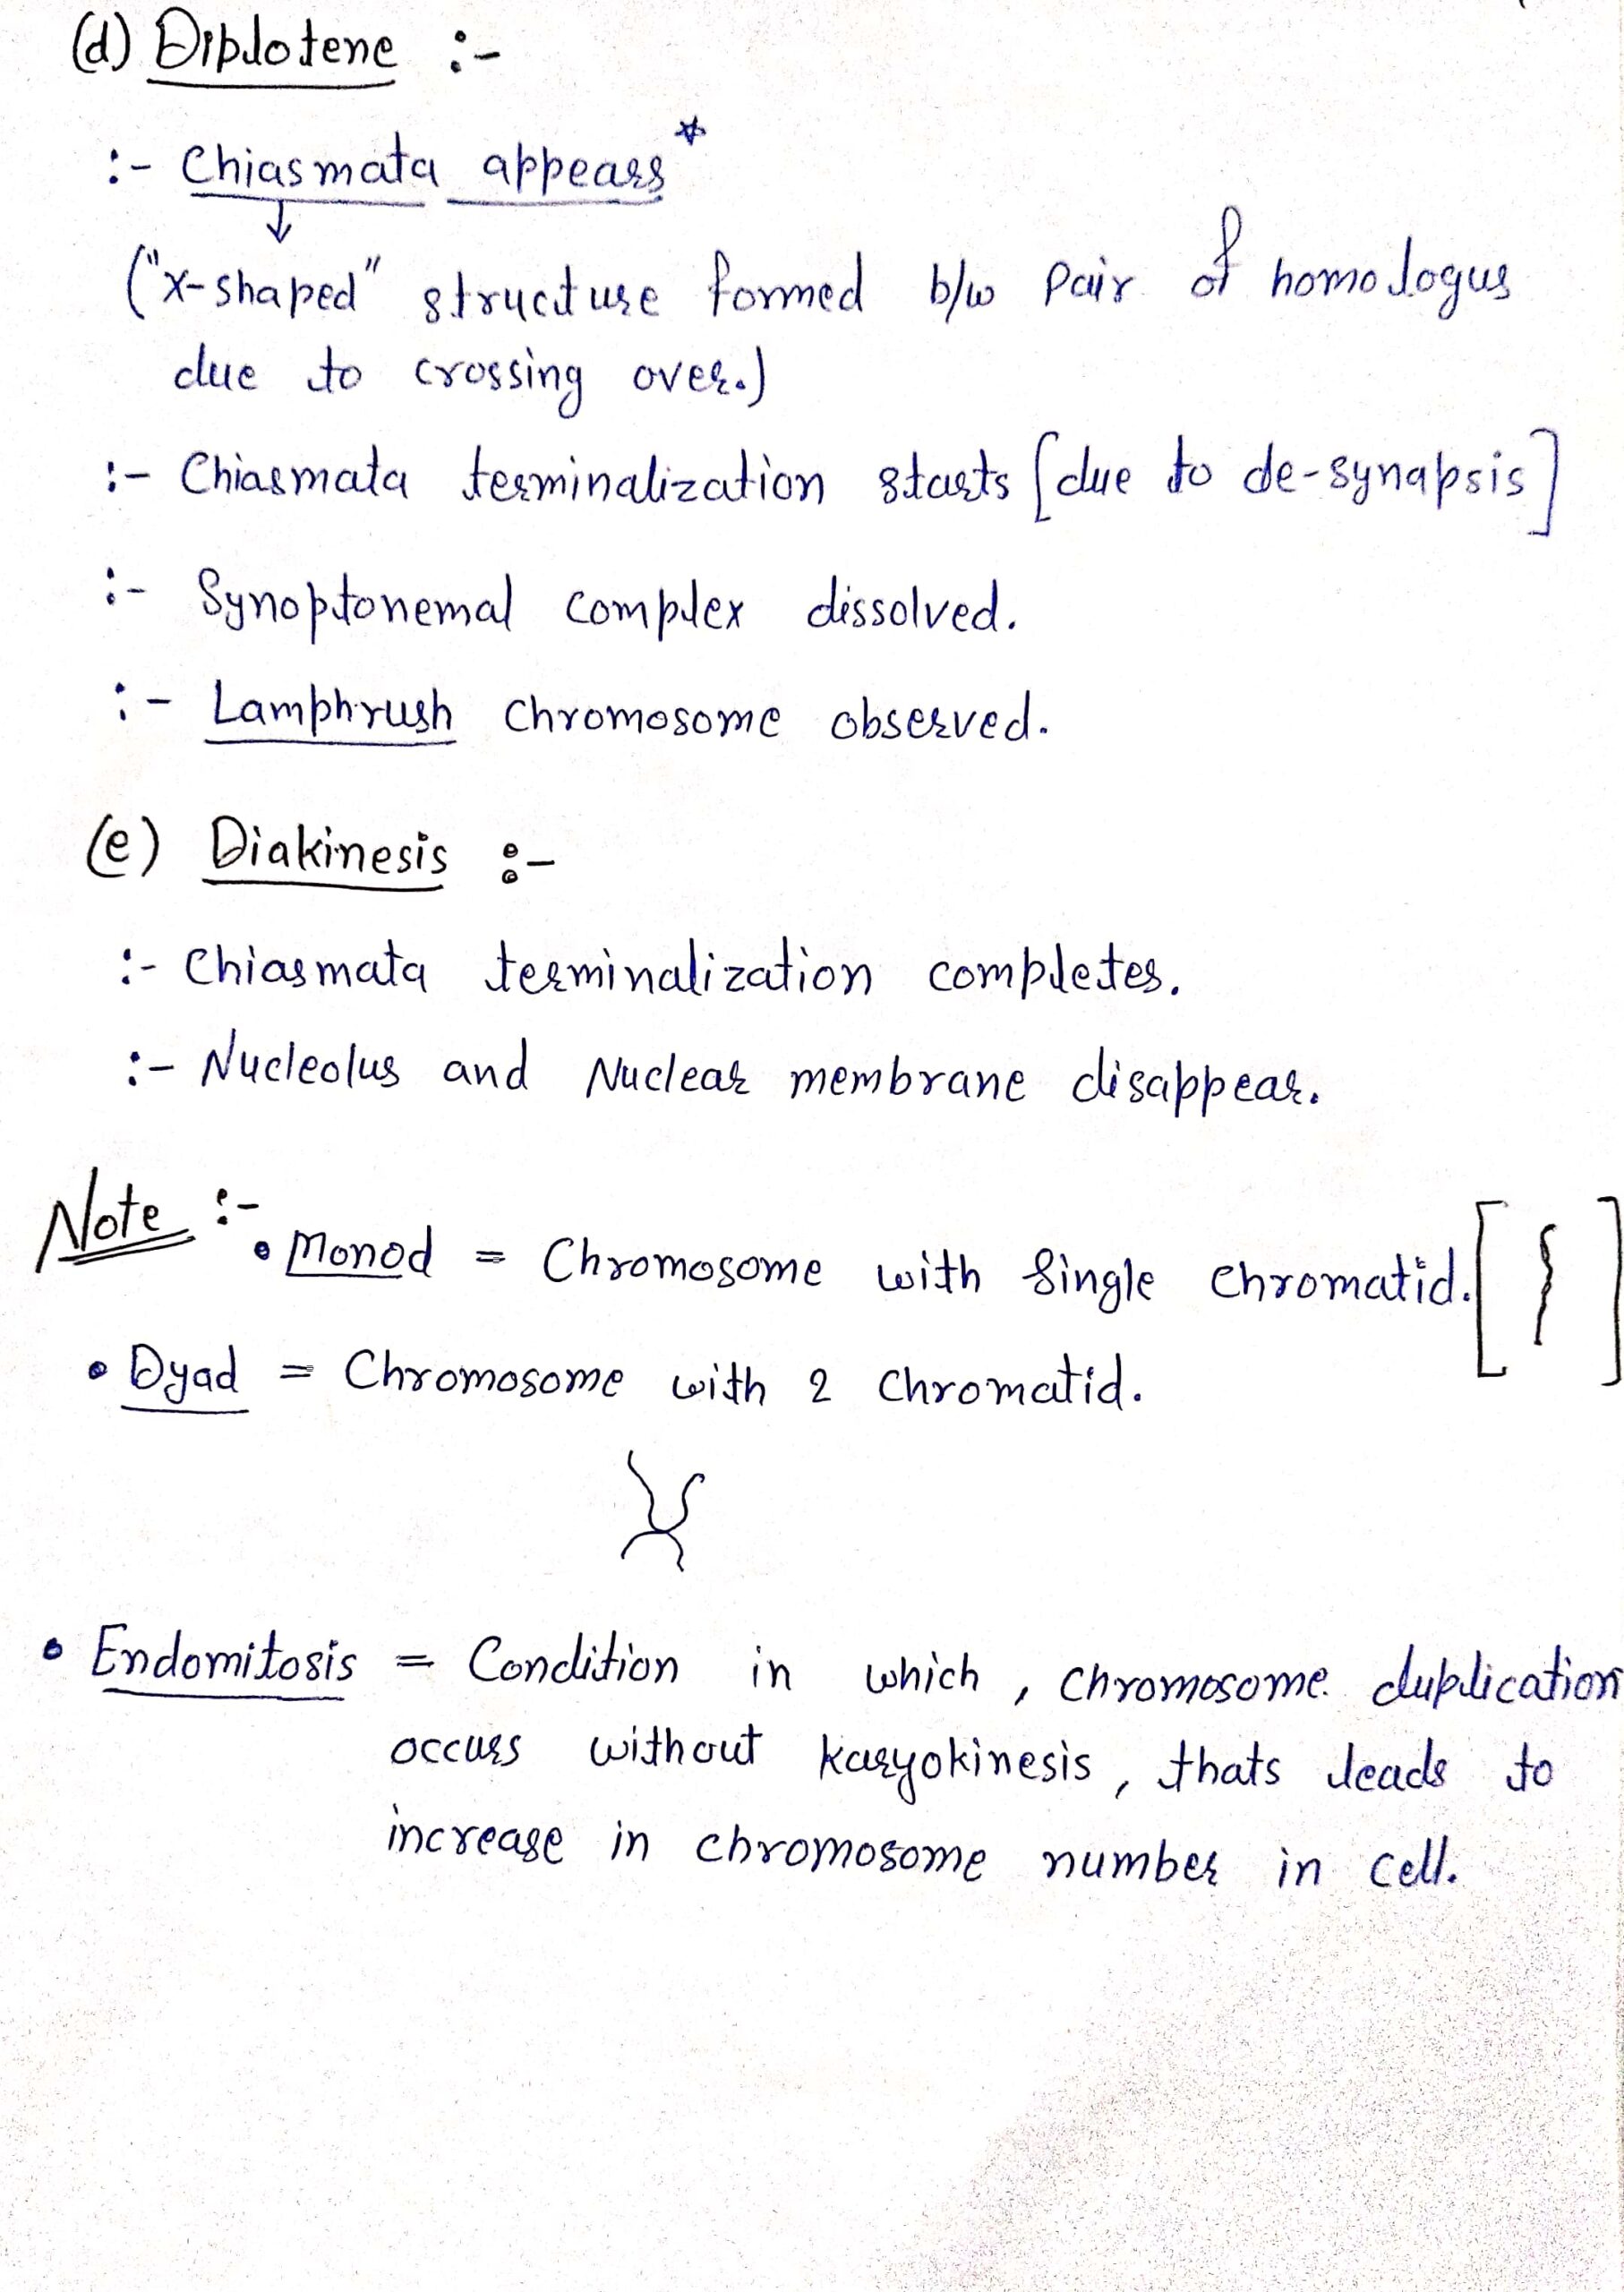 (d) Diplotene :-
:- Chiasmata appears*
("x-shaped" structure formed b/w Pair of homologus
due to crossing over.)
:- Chiasmata terminalization starts [due to de-synapsis]
:- Synoptonemal complex dissolved.
:- Lamphrush chromosome observed.
(e) Diakinesis :-
:- Chiasmata terminalization completes.
:- Nucleolus and Nuclear membrane disappear.
Note :-
• Monod = Chromosome with Single chromatid.
• Dyad = Chromosome with 2 chromatid.
• Endomitosis = Condition in which, chromosome duplication
occurs without karyokinesis, thats leads to
increase in chromosome number in cell.